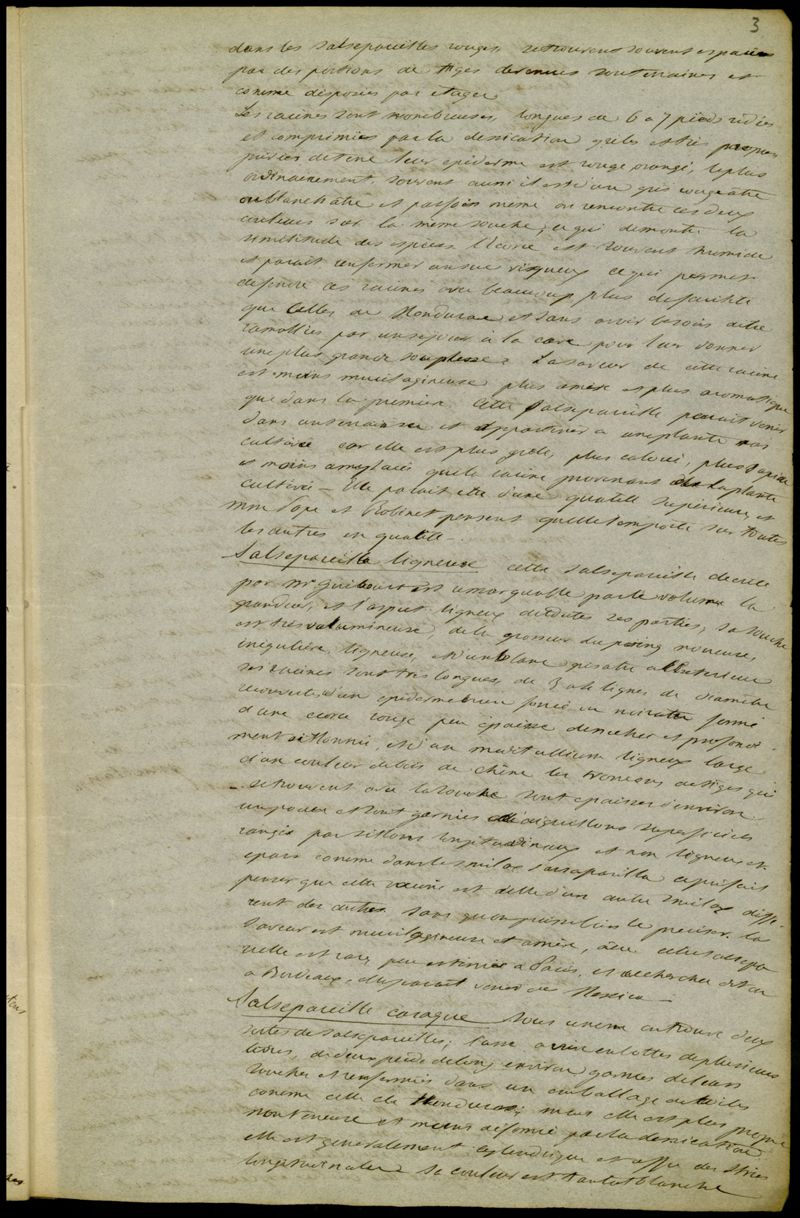 3
dans les salsepareilles rouges, se trouvent souvent espacées
par des portions de tiges devenues souterraines et
comme disposées par étages
Les racines sont nombreuses, longues de 6 a 7 pieds ridées
et comprimées par la dessication grêles et très propres
privées de terre leur epiderme est rouge orangé, le plus
ordinairement souvent aussi il est d'un gris rougeâtre
ou blanchâtre et parfois même on rencontre ces deux
couleurs sur la même souche, ce qui demontre la
similitude des espèces L'ecorce est souvent humide
et parait renfermer un suc visqueux ce qui permet
de fendre ces racines avec beaucoup plus de facilité
que Celles de Honduras et sans avoir besoin d'etre
ramollies par un sejour à la cave pour leur donner
une plus grande souplesse. La saveur de cette racine
est moins mucilagineuse plus amère et plus aromatique
que dans la premiere Cette Salsepareille parait venir
dans and appartenir a une plante non
cultivée car elle est plus grêle, plus coloré, plus sapide
et moins amylacée que la racine provenant de la plante
cultivée - Elle parait etre d'une qualité superieure, et
mm Pope et Robinet pensent qu'elle l'emporte sur toutes
les autres en qualité -
Salsepareille ligneuse cette salsepareille decrite
par Mr Guibourt est remarquable par le volume la
grandeur, et l'aspect ligneux de toutes ses parties, sa souche
est très volumineuse, de la grosseur du poing noueuse,
irrégulière, ligneuse, et d'un blanc grisatre a l'exterieur
ses racines sont très longues, de 3 a 4 lignes de diamètre
recouvertes d'un epiderme brun foncé ou noiratre formé
d'une ecorce rouge peu épaisse dessechée et profondé
ment sillonnée, et d'un meditullium ligneux large
d'un couleur de bois de chêne les tronçons de tiges qui
se trouvent avec la souche sont epaisses d'environ
un pouce et sont garnies d'aiguillons superficiels
rangés par sillons longitudinaux et non ligneux et
epais comme dans le smilax sarsaparilla ce qui fait
penser que cette racine est celle d'un autre smilax diffe
rent des autres sans qu'on puisse bien le préciser. La
saveur est mucilagineuse et amère, acre cette salsepa
reille est rare peu estimée a Paris, et recherchée dit on
a Bordeaux, elle parait venir du Mexico -
Salsepareille caraque Sous ce nom on trouve deux
sortes de salsepareilles, l'une arrive en bottes de plusieurs
livres, de deux pieds de long environ garnies de leurs
souches et renfermées dans un emballage de toiles
comme celle de Honduras; mais elle est plus propre
non terreuse et moins déformée par la dessication
elle est généralement cylindrique et offre des stries
longitudinales Sa couleur est tantot blanche